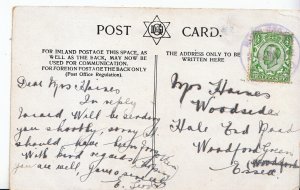 POST CARD.
FOR INLAND POSTAGE THIS SPACE, AS
WELL AS THE BACK, MAY NOW BE
USED FOR COMMUNICATION.
FOR FOREIGN POSTAGE THE BACK ONLY
(Post Office Regulation).
THE ADDRESS ONLY TO BE
Dear Mrs Haines
In reply
to card, Will be sending
you shortly, sorry it
should have been forgotten
With kind regards hoping
you are well, yours sincerely
E.
Mrs Haines
Woodside
Hale End Road
Woodford Green
Woodford
Essex